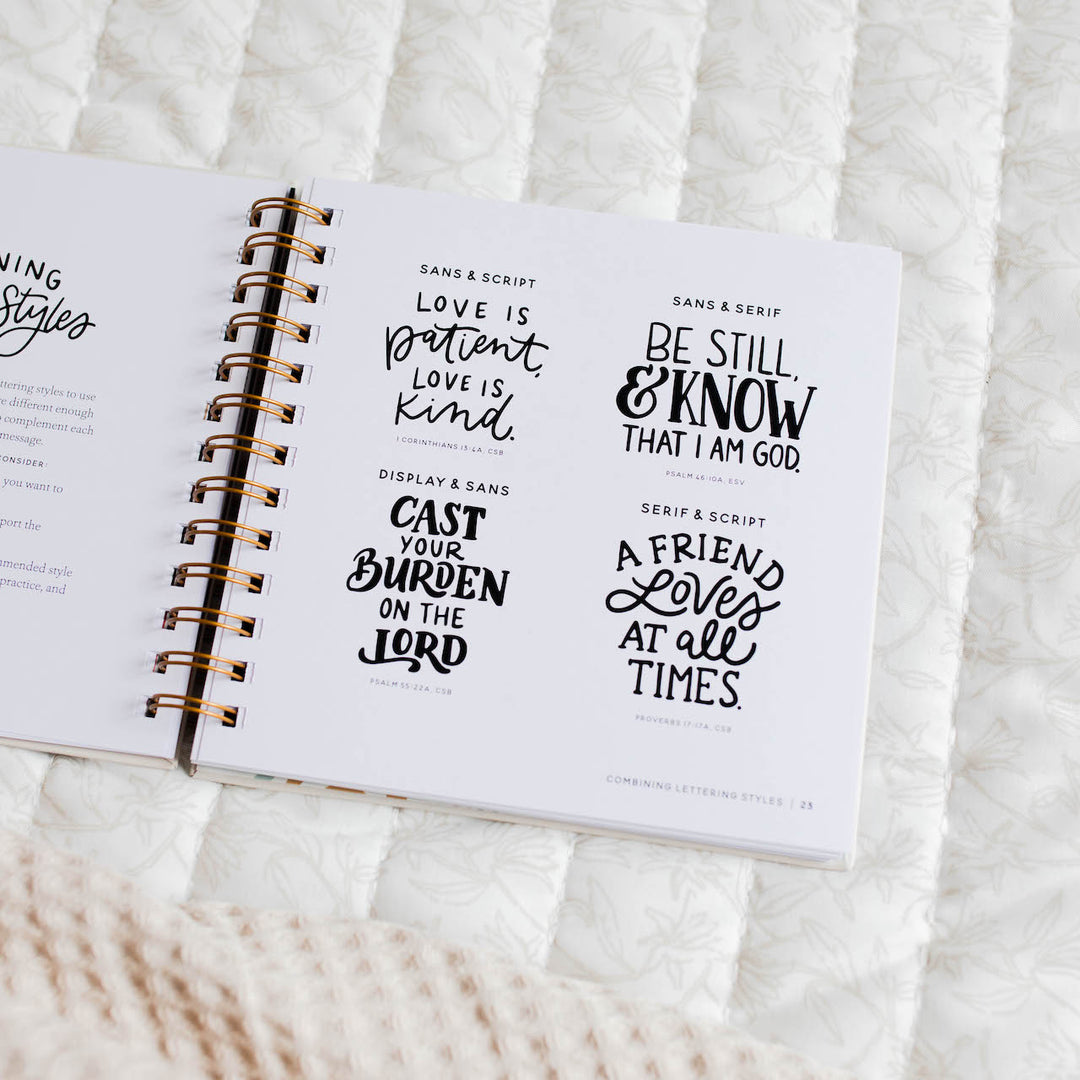 Styles
ttering styles to use
different enough
complement each
message.
CONSIDER:
you want to
port the
style
practice, and
SANS & SCRIPT
LOVE IS
patient,
LOVE IS
kind.
1 CORINTHIANS 13:4A, CSB
SANS & SERIF
BE STILL,
& KNOW
THAT I AM GOD.
PSALM 46:10A, ESV
DISPLAY & SANS
CAST
YOUR
BURDEN
ON THE
LORD
PSALM 55:22A, CSB
SERIF & SCRIPT
A FRIEND
Loves
AT all
TIMES.
PROVERBS 17:17A, CSB
COMBINING LETTERING STYLES | 23